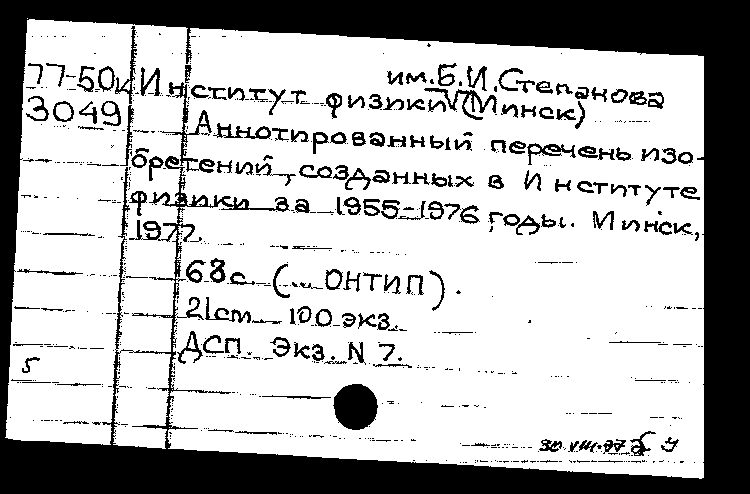 77-50к
3049
им. Б.И. Степанова
Институт физики V (Минск)
Аннотированный перечень изо-
бретений, созданных в Институте
физики за 1955-1976 годы. Минск,
1977.
68 с. (... ОНТИП).
21 cm 100 экз.
ДСП. Экз. N 7.
5
30.VIII.77